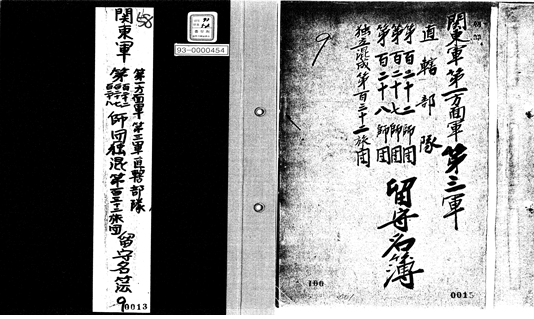 関東軍 第一方面軍 第三軍
直轄部隊
第百二十二師団
第百二十七師団
第百二十八師団
独立混成第百三十二旅団
留守名簿
9
100
0015
58
関東軍
第一方面軍 第三軍 直轄部隊
第 百二十二 百二十七 百二十八 師団 独混第百三十二旅団 留守名簿
9
0013
93-0000454